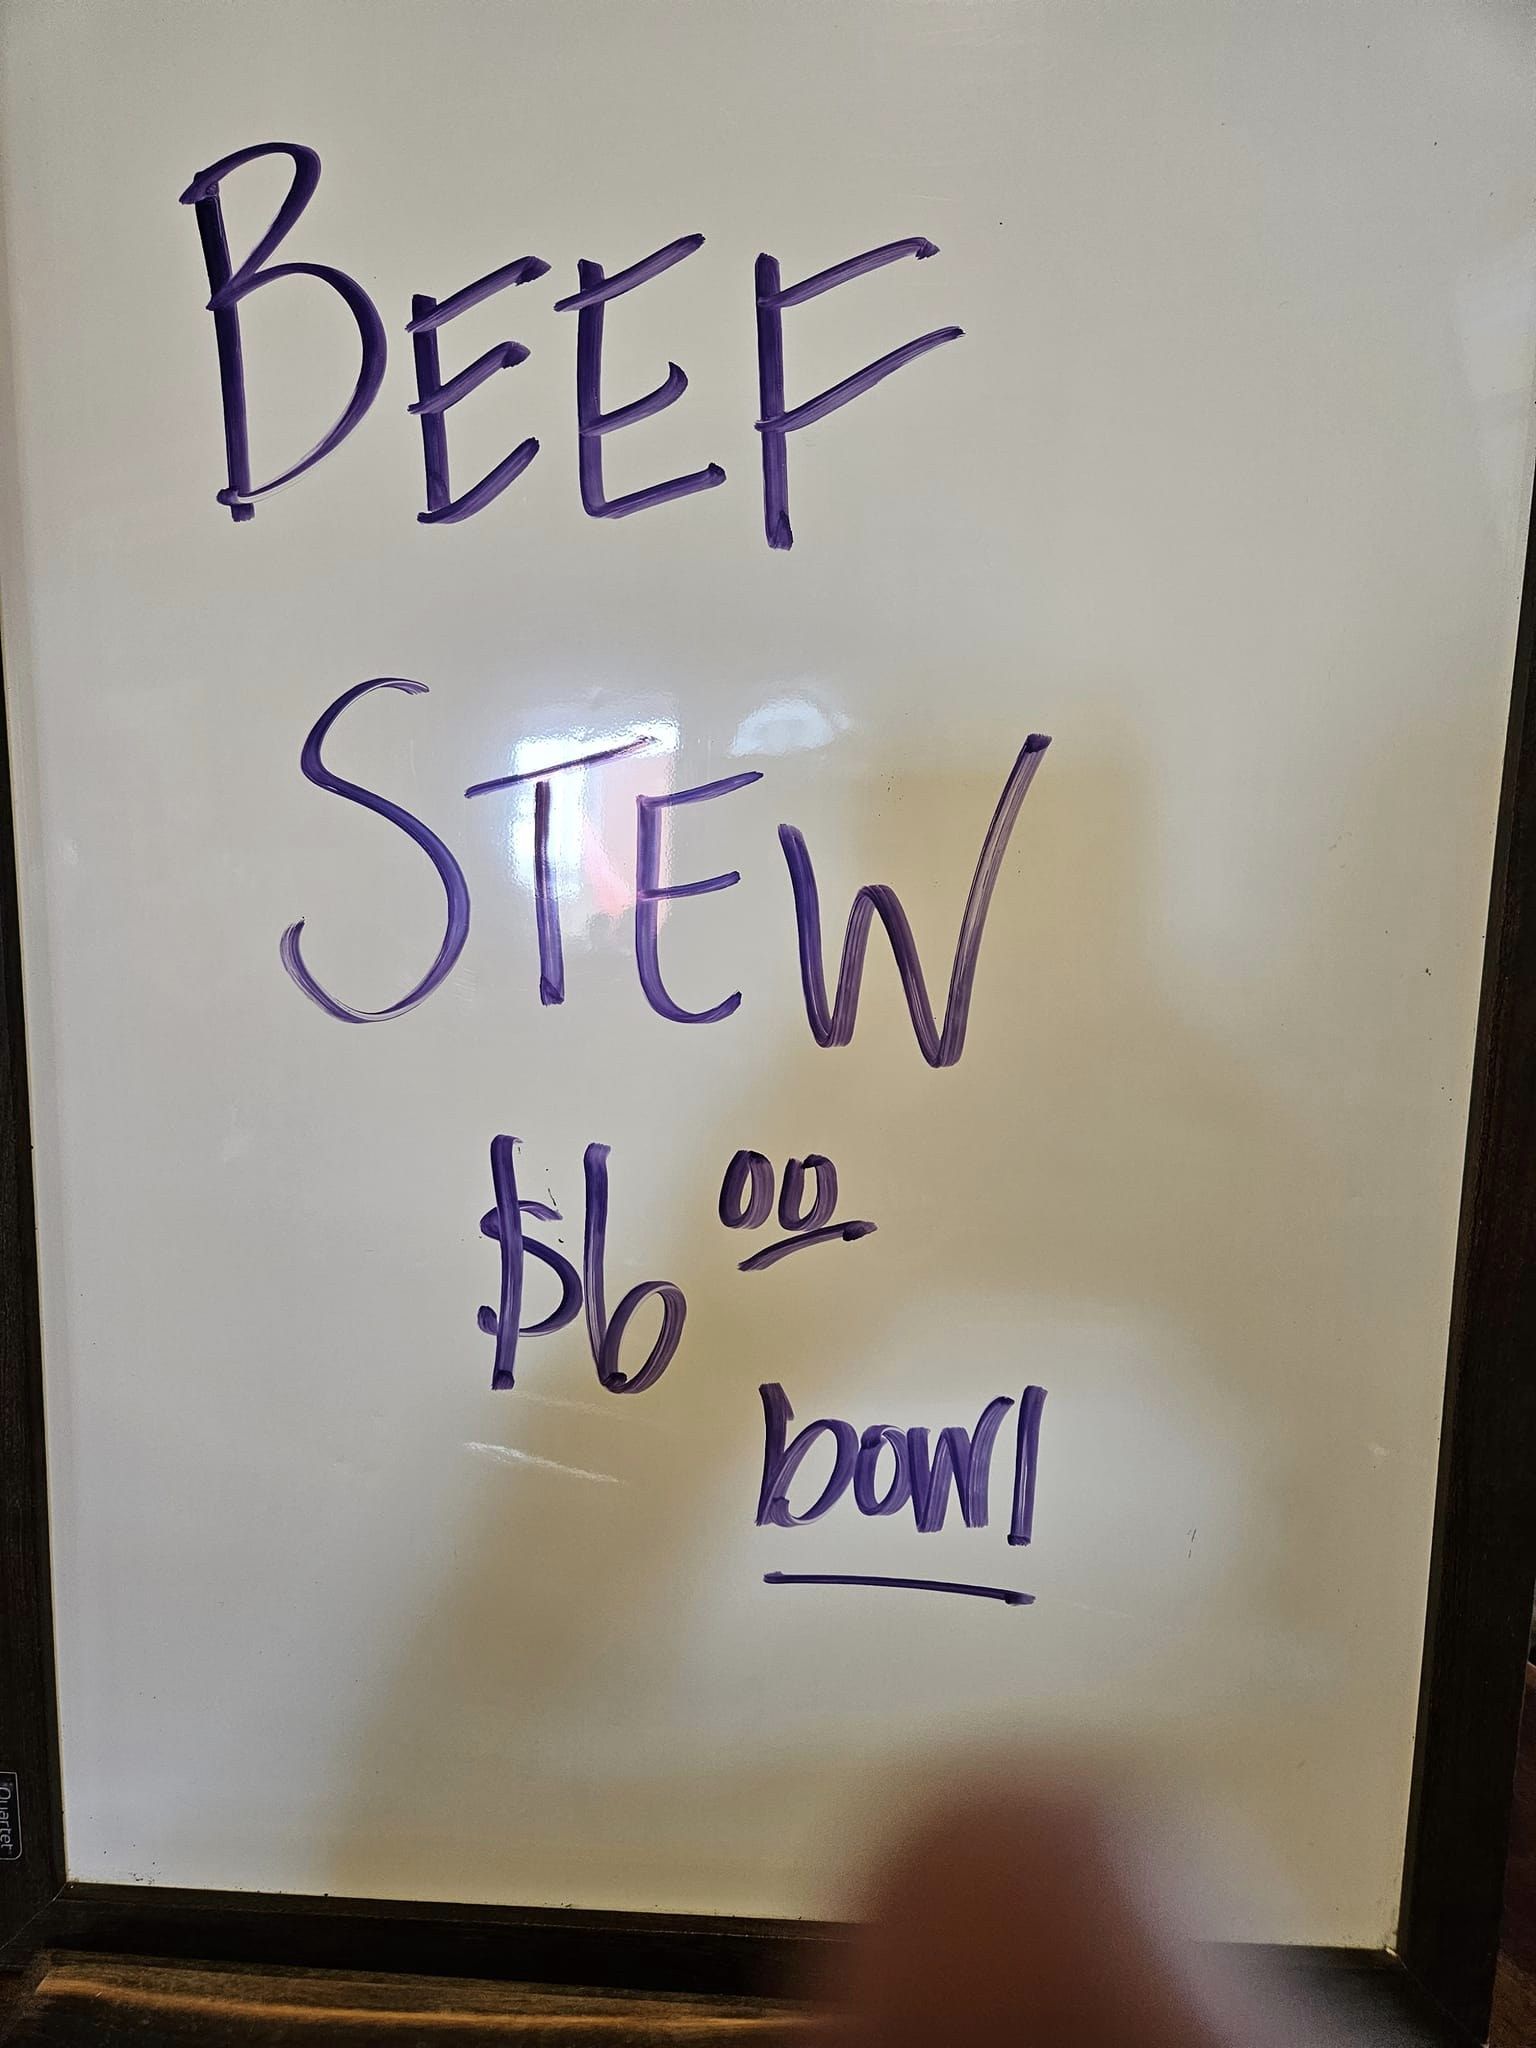 BEEF
STEW
$6 00
bowl
Quartet